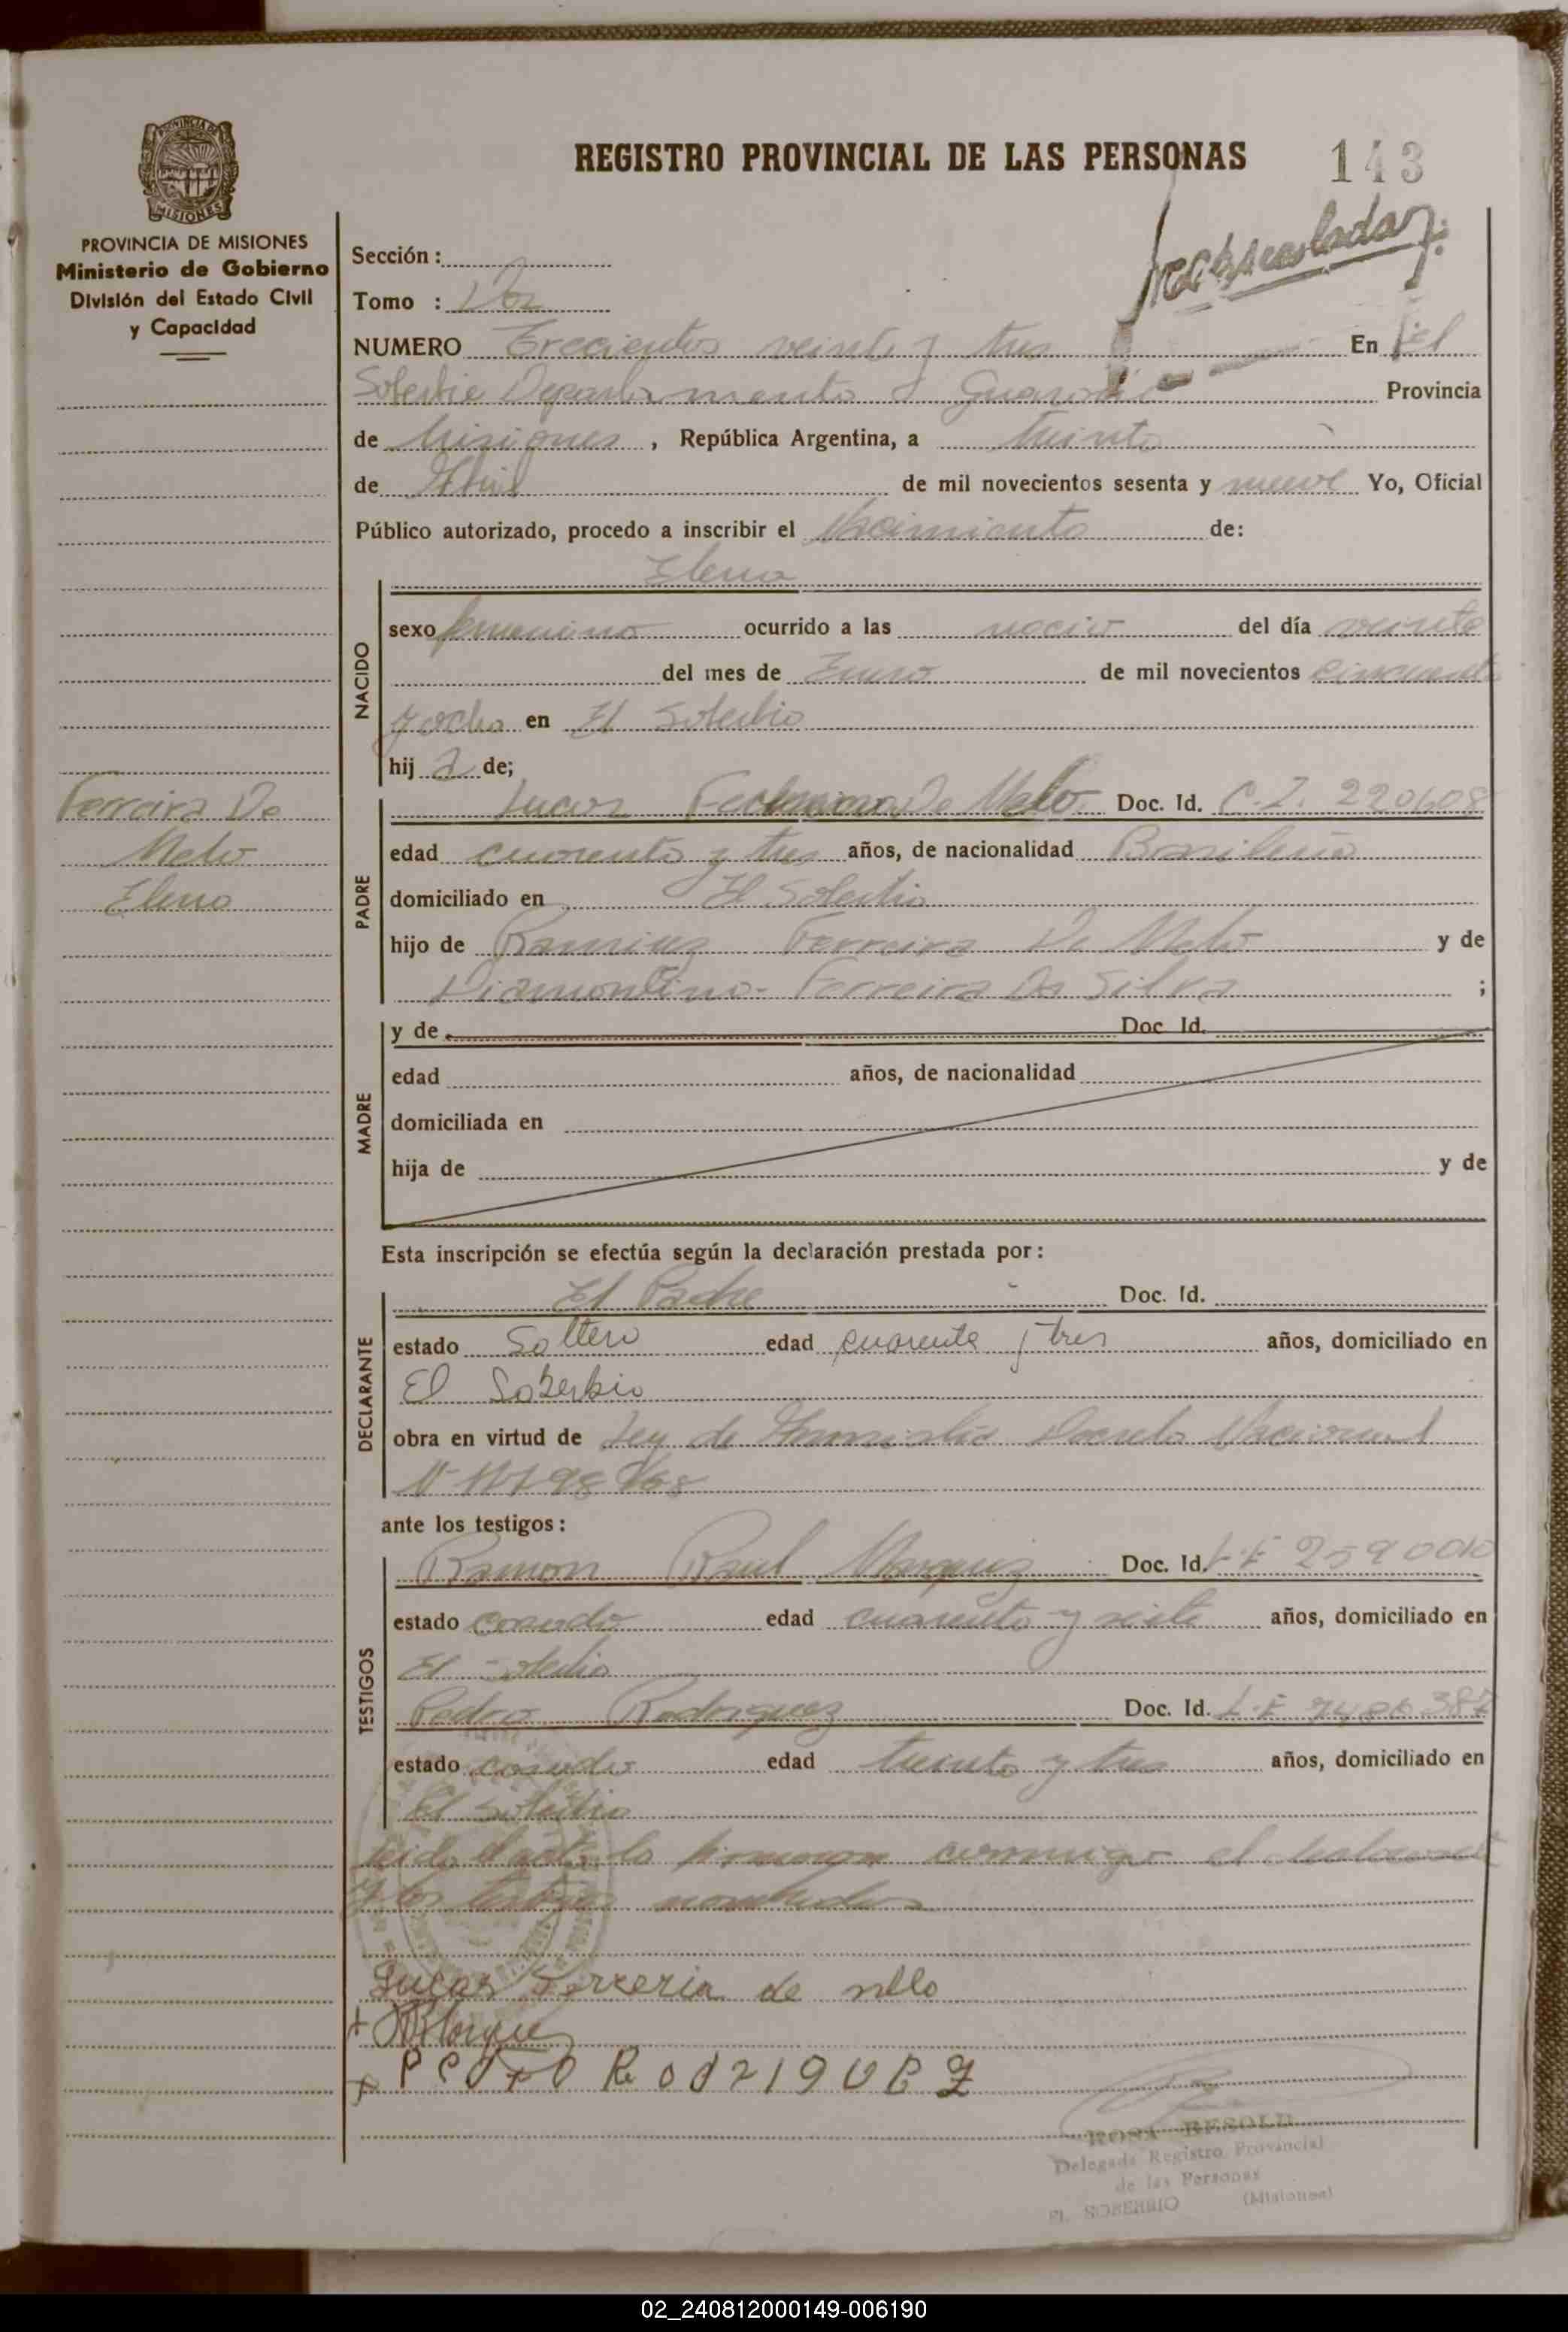 REGISTRO PROVINCIAL DE LAS PERSONAS
143
PROVINCIA DE MISIONES
MISIONES
PROVINCIA DE MISIONES
Ministerio de Gobierno
División del Estado Civil
y Capacidad
Sección :
Tomo : Dos
NUMERO Trecientos veinte y tres En El
Soberbio Departamento Guarani Provincia
de Misiones , República Argentina, a treinta
de Abril de mil novecientos sesenta y nueve Yo, Oficial
Público autorizado, procedo a inscribir el Nacimiento de:
Elena
NACIDO
sexo femenino ocurrido a las nacio del día veinte
del mes de Enero de mil novecientos cincuenta
y ocho en El Soberbio
hij a de;
Ferreira De
Melo
Elena
PADRE
Lucas De Melo Doc. Id. C.I. 220608
edad cuarenta y tres años, de nacionalidad Brasileña
domiciliado en El Soberbio
hijo de Ferreira De Melo y de
Ferreira Da Silva ;
MADRE
y de Doc. Id.
edad años, de nacionalidad
domiciliada en
hija de y de
Esta inscripción se efectúa según la declaración prestada por :
DECLARANTE
El Padre Doc. Id.
estado Soltero edad cuarenta y tres años, domiciliado en
El Soberbio
obra en virtud de Ley de Amnistia Decreto Nacional
ante los testigos :
TESTIGOS
Ramon Raul Marquez Doc. Id. L.E
estado casado edad cuarenta y siete años, domiciliado en
El Soberbio
Pedro Rodriguez Doc. Id. L.E
estado casado edad treinta y tres años, domiciliado en
El Soberbio
Leido el acta la firman conmigo el
y los testigos nombrados
Lucas Ferreria de mello
ROSA BESOLD
Delegada Registro Provincial
de las Personas
EL SOBERBIO (Misiones)
02_240812000149-006190